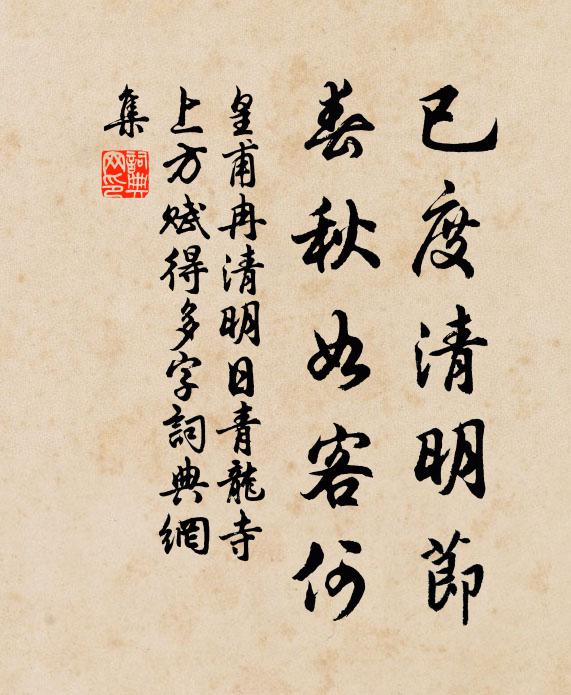 已度清明節
春秋如客何
皇甫冉清明日青龍寺
上方賦得多字詞典網
集
詞典網印